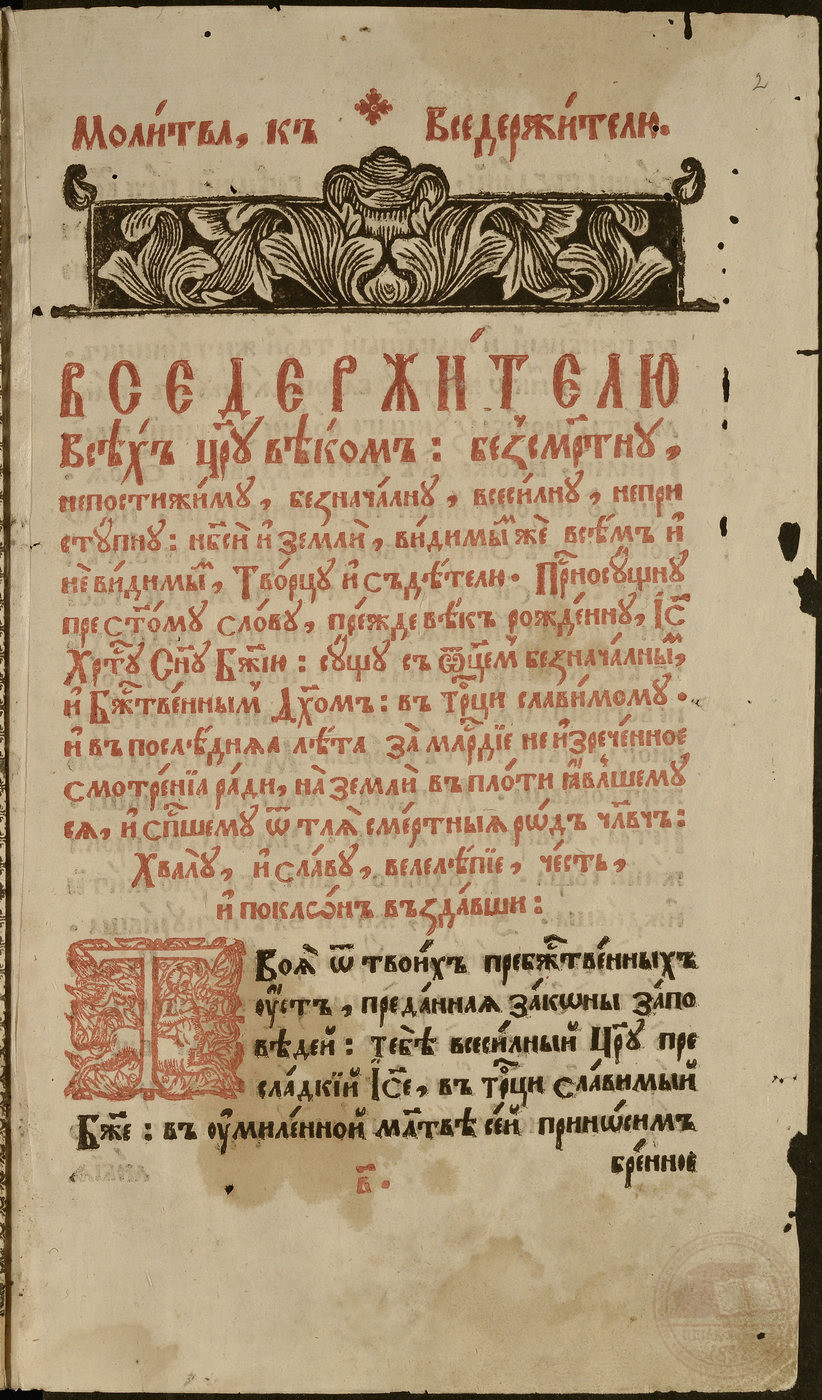 2
Моли́тва, къ Вседержи́телю.
ВСЕДЕРЖИ́ТЕЛЮ
Всѣ́хъ цр҃ю вѣко́мъ : без̾сме́ртнꙋ,
непостижи́мꙋ, безнача́лнꙋ, всеси́лнꙋ, непри
стꙋ́пнꙋ : нб҃сѝ и҆ землѝ, ви́димыⷨ же всѣ́мъ и҆
не ви́димыⷨ, Тво́рцꙋ и҆ съдѣ́телю. Прⷭ҇носꙋ́щнꙋ
прест҃о́мꙋ сло́вꙋ, пре́жде вѣ́къ рожде́ннꙋ, І҆с҃
Хрⷭ҇тꙋ́ Сн҃ꙋ Бж҃їю : сꙋ́щꙋ съ ѿц҃е́мъ безнача́лныⷨ,
и҆ Бжⷭ҇тве́нным̾ Дх҃омъ : въ трⷪ҇ци слави́момꙋ .
и҆ въ послѣ́дняѧ лѣ́та за̀ млⷭ҇рдїе неи҆зрече́нное
смотре́нїѧ ра́ди, на̀ землѝ въ пло́ти ꙗ҆́вльшемꙋ
сѧ, и҆ сп҃шемꙋ ѿ тлѧ̀ сме́ртныѧ рѡ́дъ чл҃вчь :
Хвалꙋ̀, и҆ сла́вꙋ, велелѣ́пїе, че́сть,
и҆ поклѡ́нъ въздавши :
Твоѧ̀ ѿ твои́хъ пребжⷭ҇тве́нныхъ
оу҆́стъ, преда́ннаѧ зако́ны за́по
вѣдей : тебѣ̀ всеси́лный Цр҃ю пре
сла́дкїй І҆с҃е, въ трⷪ҇ци сла́вимый
Бж҃е : въ оу҆миле́нной мл҃твѣ се́й принѡ́симъ
бре́нное
в҃.